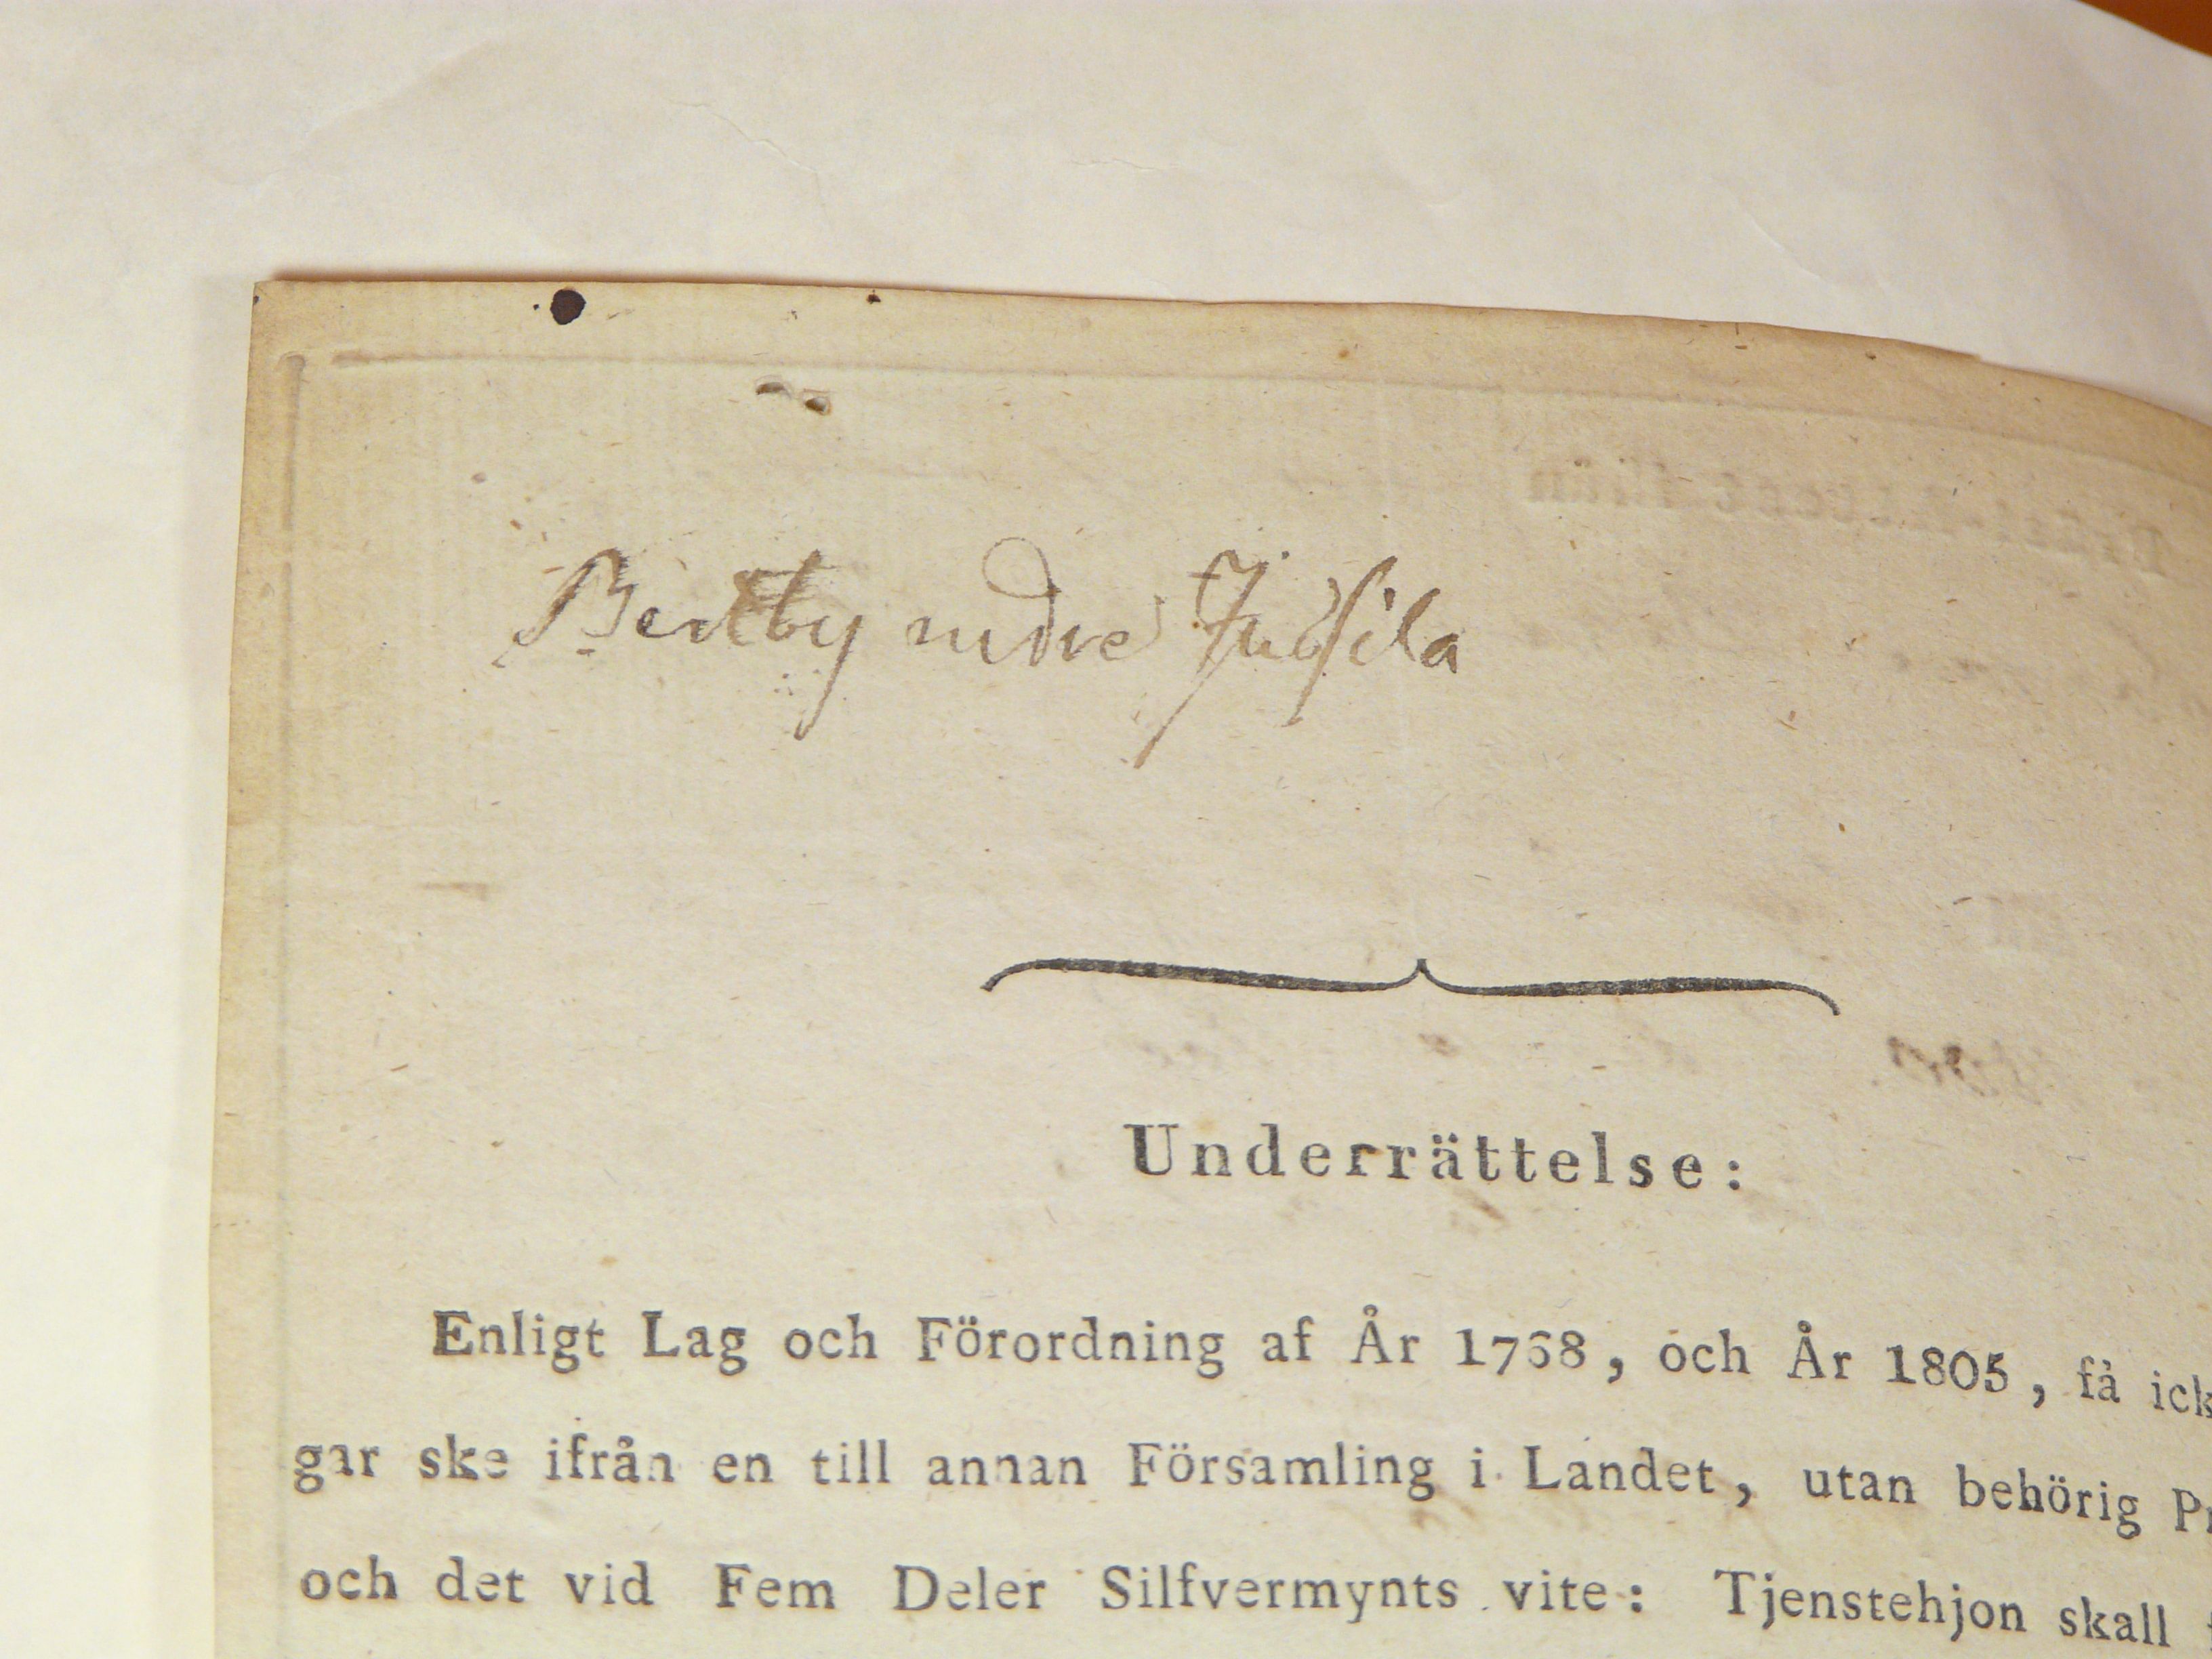 Bertby nedre Jussila
Underrättelse:
Enligt Lag och Förordning af År 1768, och År 1805, få ick
gar ske ifrån en till annan Församling i Landet, utan behörig Pr
och det vid Fem Deler Silfvermynts vite: Tjenstehjon skall